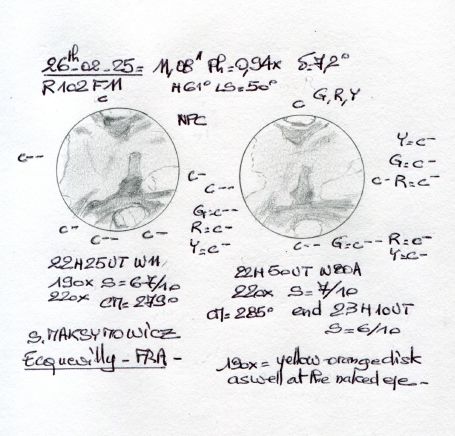 26th-02-25= 11,08" Ph=0,94x δ=7,2°
R102FM H 61° LS=50°
C
NPC
C G,R,Y
C--
C-
C--
Y=C-
G=C-
C- R=C-
G=C--
R=C-
Y=C-
C- C-- C-
C-- G=C-- R=C-
Y=C-
22H25UT W11
190x S=6-7/10
220x CM=279°
22H50UT W80A
220x S=7/10
CM=285° end 23H10UT
S=6/10
S.MAKSYMOWICZ
Ecquevilly-FRA-
190x= yellow-orange disk
aswell at the naked eye-